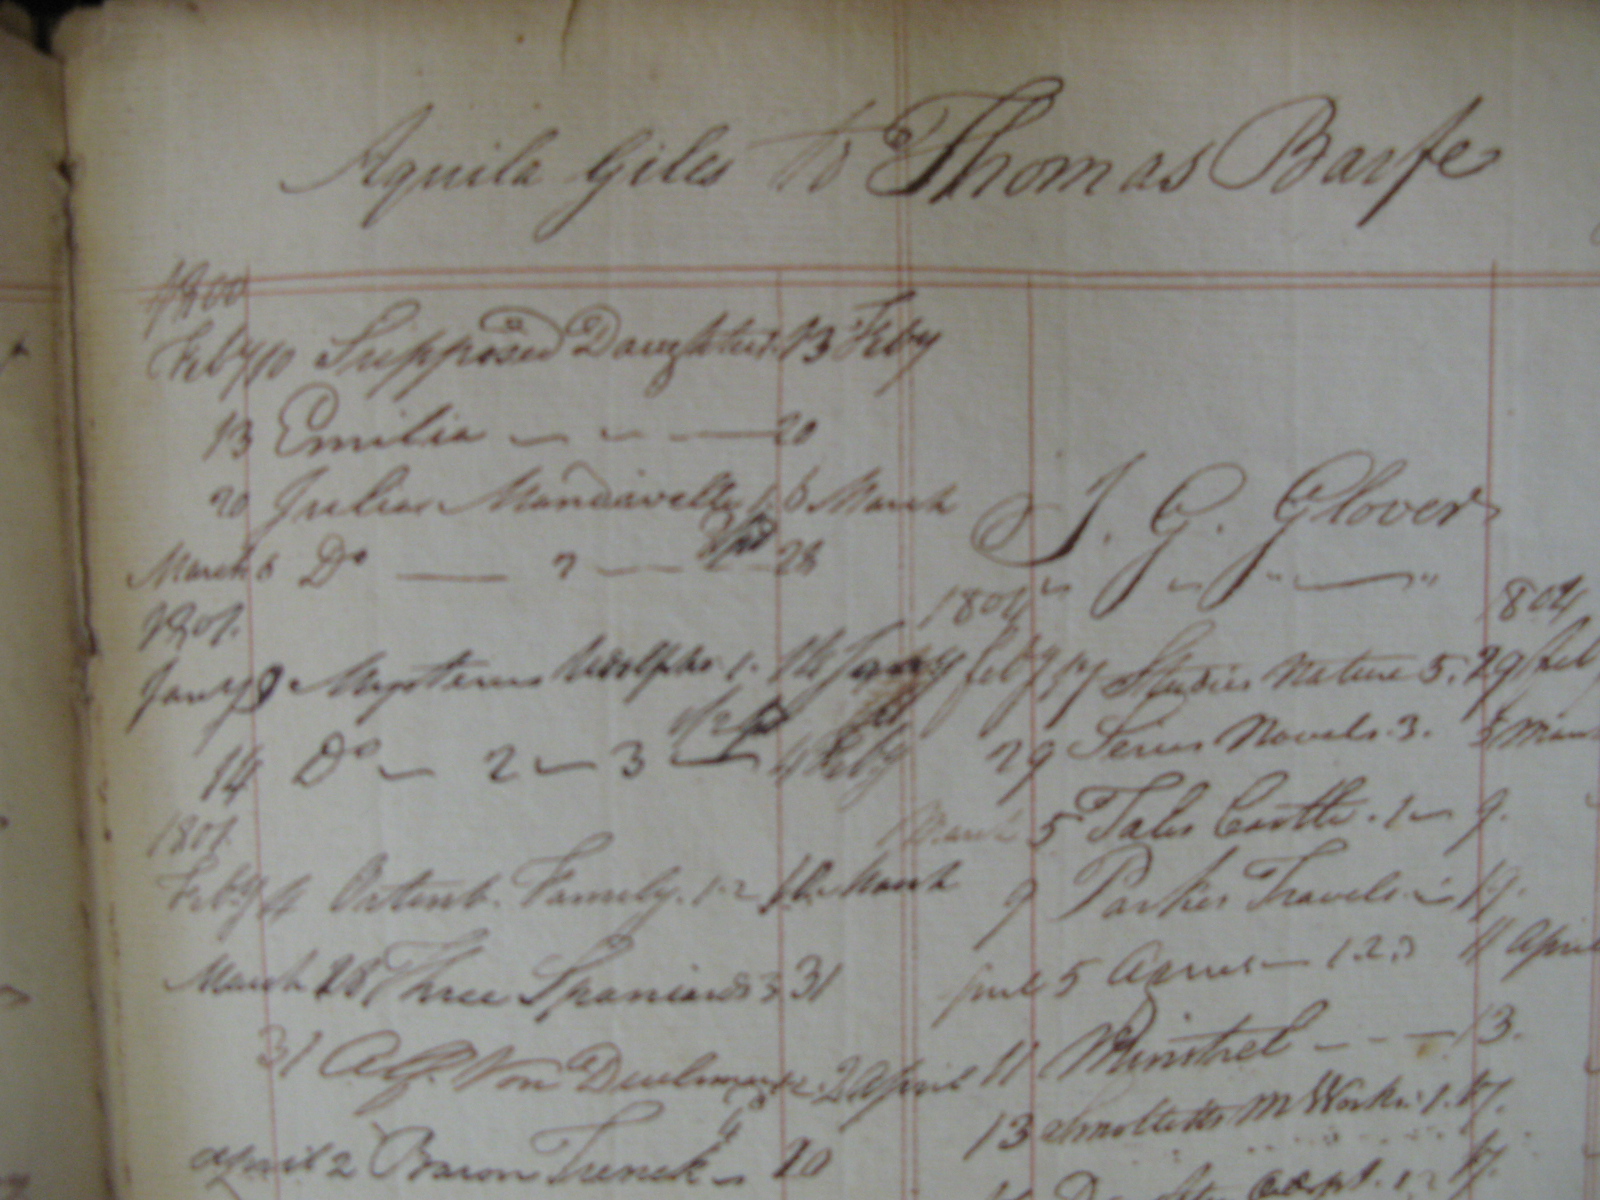 Aquila Giles to Thomas Barfe
1800
Feby 10 Supposed Daughter. 13 Feby
13 Emilia — — — 20
20 Julia Mandaville 1. 6 March
March 6 Do — 2 — 28
1801.
Jany 9 Mysteries Udolpho. 1. 14 Jany
14 Do — 2 — 3 — 4 Feby
1801.
Feby 4 Ortenb. Family. 1-2 March
March 28 Three Spaniards 31
31 Alf. Von Duelman 2 April
April 2 Baron Trenck — 10
J. G. Glover
1804 " " " — " 1804
Feby 17 Studies Nature 5. 29 Feb
29 Series Novels. 3. 5
March 5 Tales Castle. 1 — 9.
9 Parkes Travels — 19.
5 — 1.2. 11 April
11 Minstrel - - — 13.
13 Smolletts M Works. 1. 17.
Do 17.